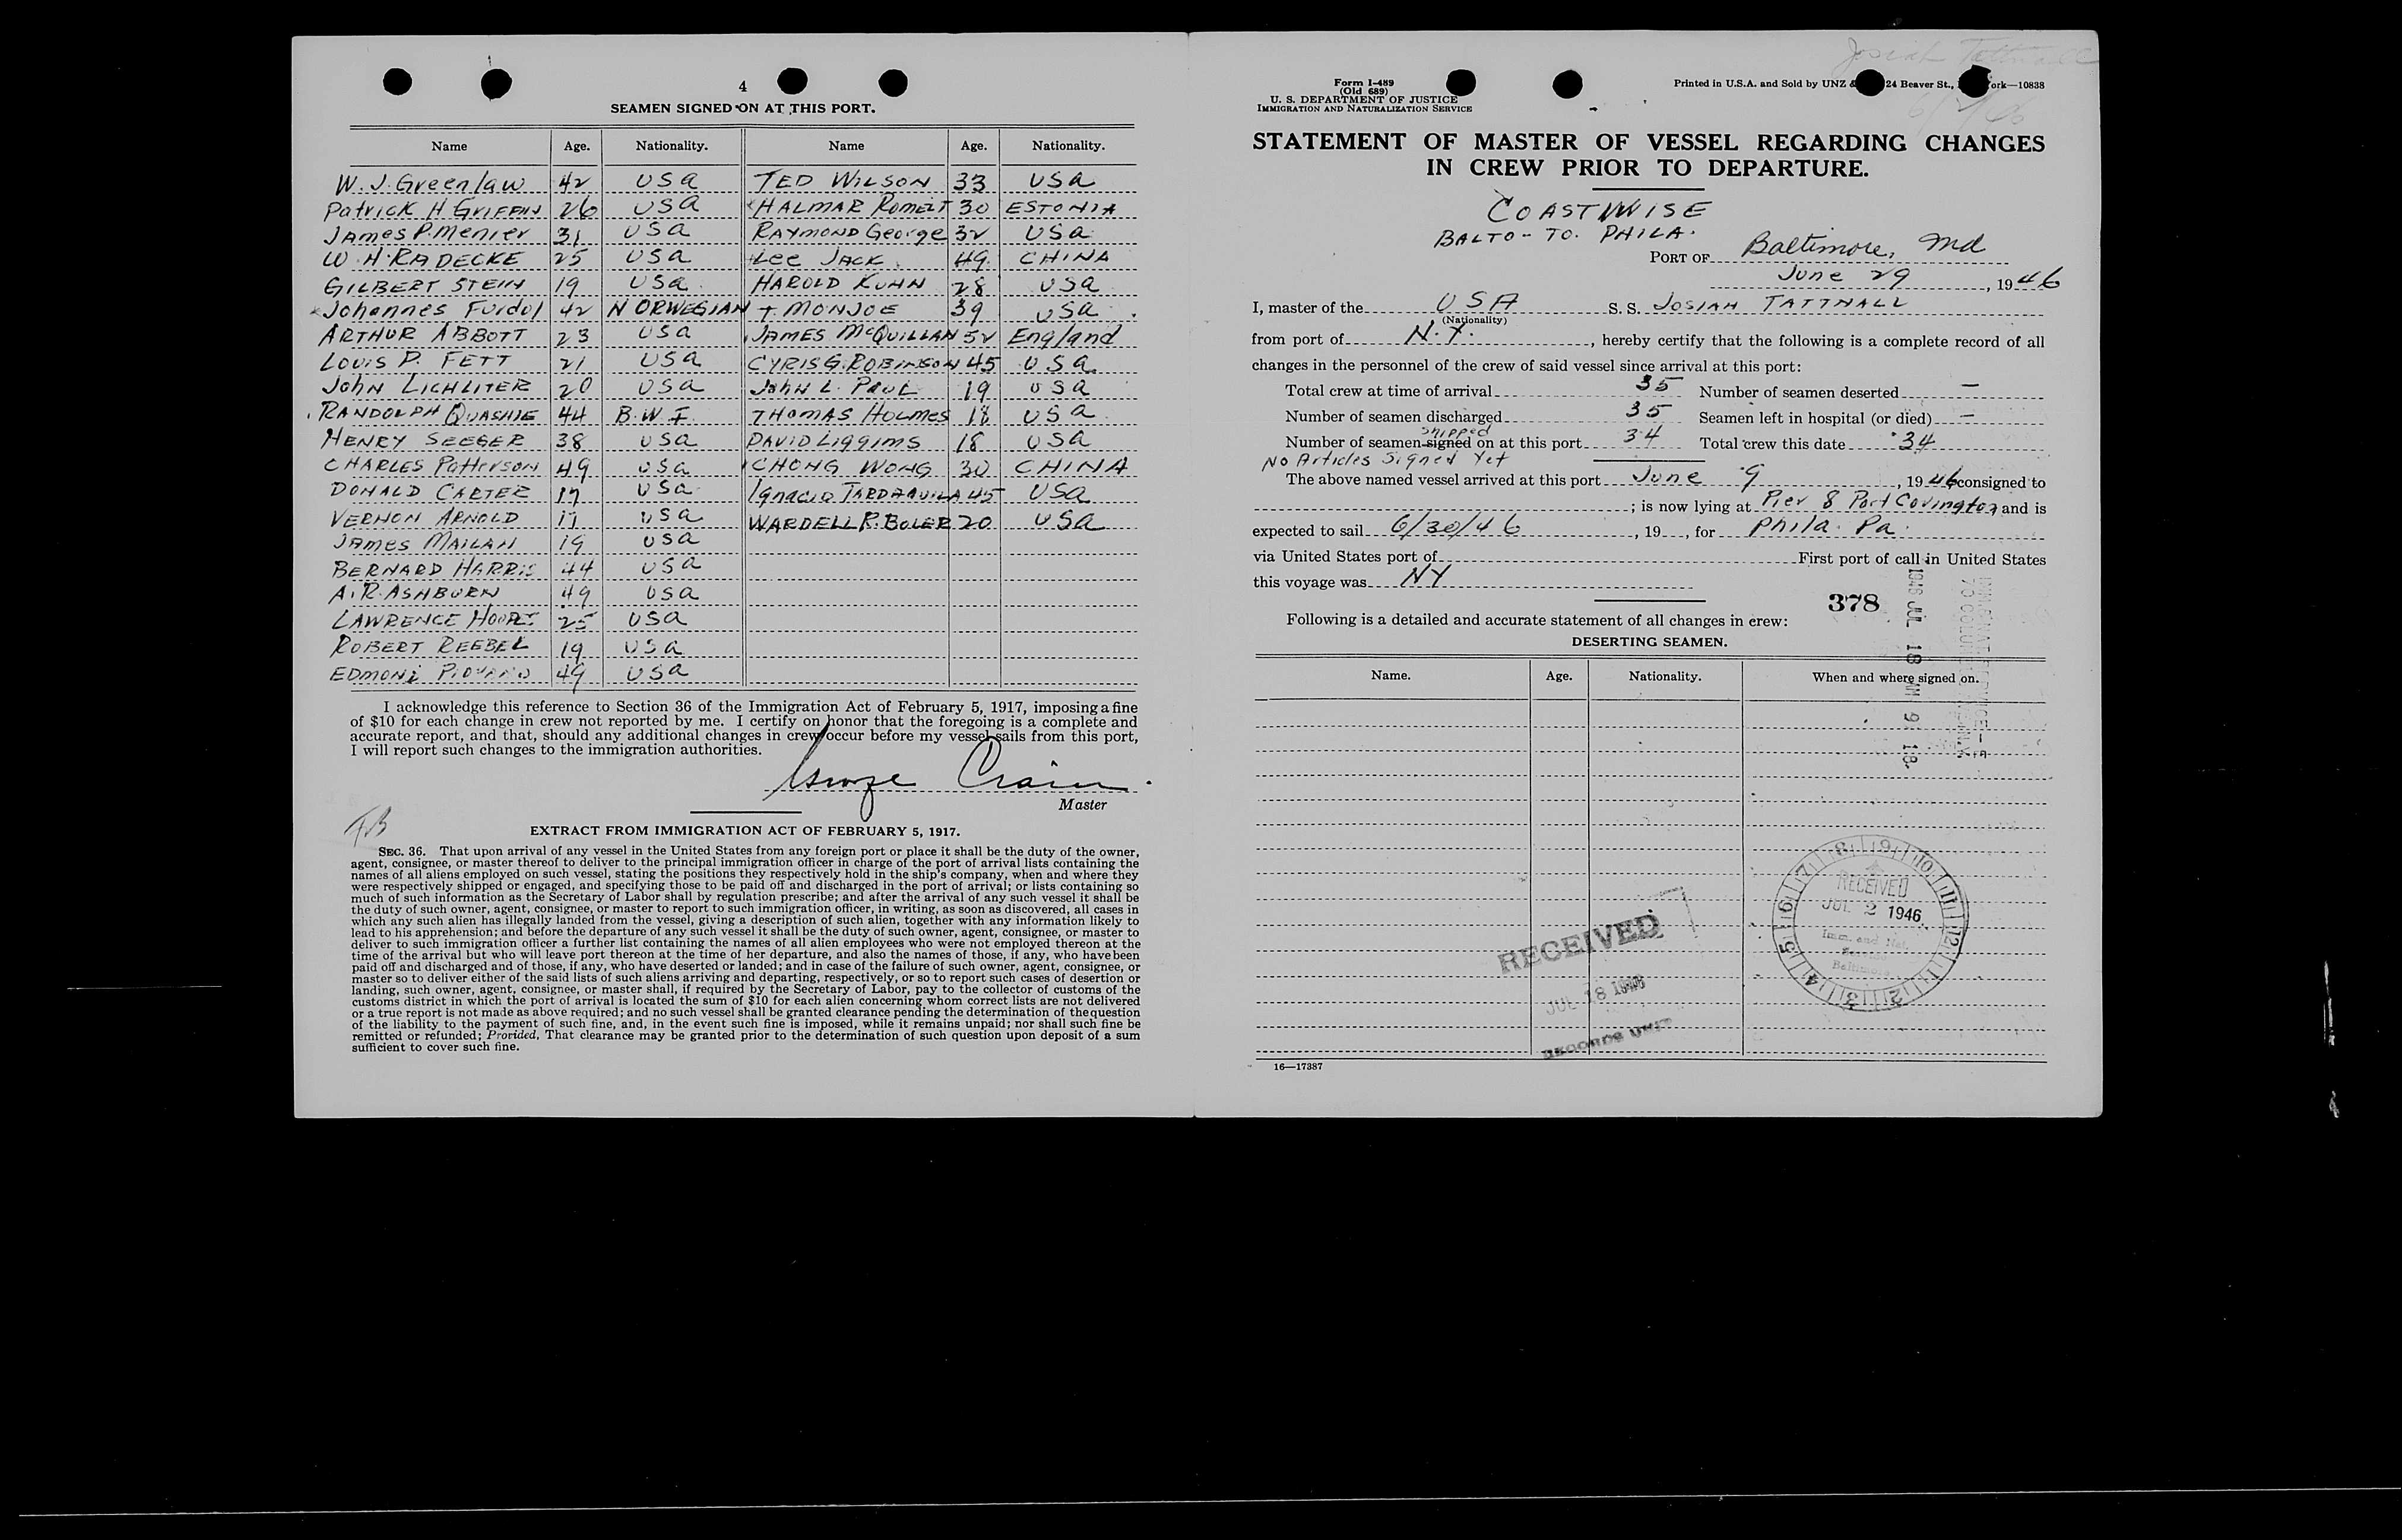 4
SEAMEN SIGNED ON AT THIS PORT.
Name Age. Nationality. Name Age. Nationality.
W. J. Greenlaw 42 USA TED WILSON 33 USA
Patrick H GRIFFIN 26 USA HALMAR ROMELT 30 ESTONIA
JAMES P. Menier 31 USA RAYMOND George 32 USA
W. H. RADECKE 25 USA Lee JACK 49 CHINA
GILBERT STEIN 19 USA HAROLD KUHN 28 USA
Johannes Furdol 42 NORWEGIAN T. MONJOE 39 USA
ARTHUR ABBOTT 23 USA JAMES McQUILLAN 52 England
LOUIS P. FETT 21 USA CYRIS G. ROBINSON 45 USA
John LICHLITER 20 USA John L. PAUL 19 USA
RANDOLPH QUASHIE 44 B.W.I. THOMAS HOLMES 18 USA
HENRY SEEGER 38 USA DAVID LIGGIMS 18 USA
CHARLES Patterson 49 USA CHONG WONG 30 CHINA
DONALD CARTER 17 USA Ignacio TARDAGUILA 45 USA
VERNON ARNOLD 17 USA WARDELL R. BOLER 20 USA
JAMES MAILAN 19 USA
BERNARD HARRIS 44 USA
A. R. ASHBURN 49 USA
LAWRENCE 25 USA
ROBERT REEBEL 19 USA
49 USA
I acknowledge this reference to Section 36 of the Immigration Act of February 5, 1917, imposing a fine
of $10 for each change in crew not reported by me. I certify on honor that the foregoing is a complete and
accurate report, and that, should any additional changes in crew occur before my vessel sails from this port,
I will report such changes to the immigration authorities.
George Crain
Master
EXTRACT FROM IMMIGRATION ACT OF FEBRUARY 5, 1917.
SEC. 36. That upon arrival of any vessel in the United States from any foreign port or place it shall be the duty of the owner,
agent, consignee, or master thereof to deliver to the principal immigration officer in charge of the port of arrival lists containing the
names of all aliens employed on such vessel, stating the positions they respectively hold in the ship's company, when and where they
were respectively shipped or engaged, and specifying those to be paid off and discharged in the port of arrival; or lists containing so
much of such information as the Secretary of Labor shall by regulation prescribe; and after the arrival of any such vessel it shall be
the duty of such owner, agent, consignee, or master to report to such immigration officer, in writing, as soon as discovered, all cases in
which any such alien has illegally landed from the vessel, giving a description of such alien, together with any information likely to
lead to his apprehension; and before the departure of any such vessel it shall be the duty of such owner, agent, consignee, or master to
deliver to such immigration officer a further list containing the names of all alien employees who were not employed thereon at the
time of the arrival but who will leave port thereon at the time of her departure, and also the names of those, if any, who have been
paid off and discharged and of those, if any, who have deserted or landed; and in case of the failure of such owner, agent, consignee, or
master so to deliver either of the said lists of such aliens arriving and departing, respectively, or so to report such cases of desertion or
landing, such owner, agent, consignee, or master shall, if required by the Secretary of Labor, pay to the collector of customs of the
customs district in which the port of arrival is located the sum of $10 for each alien concerning whom correct lists are not delivered
or a true report is not made as above required; and no such vessel shall be granted clearance pending the determination of the question
of the liability to the payment of such fine, and, in the event such fine is imposed, while it remains unpaid; nor shall such fine be
remitted or refunded; Provided, That clearance may be granted prior to the determination of such question upon deposit of a sum
sufficient to cover such fine.
Josiah Tattnall
Form I-489
(Old 689)
U. S. DEPARTMENT OF JUSTICE
IMMIGRATION AND NATURALIZATION SERVICE
Printed in U.S.A. and Sold by UNZ & 24 Beaver St., ork—10838
STATEMENT OF MASTER OF VESSEL REGARDING CHANGES
IN CREW PRIOR TO DEPARTURE.
COASTWISE
BALTO - TO. PHILA.
PORT OF Baltimore, Md
June 29, 1946
I, master of the USA S. S. JOSIAH TATTNALL
(Nationality)
from port of N.Y., hereby certify that the following is a complete record of all
changes in the personnel of the crew of said vessel since arrival at this port:
Total crew at time of arrival 35 Number of seamen deserted —
Number of seamen discharged 35 Seamen left in hospital (or died) —
shipped
Number of seamen signed on at this port 34 Total crew this date 34
No Articles Signed Yet
The above named vessel arrived at this port June 9, 1946 consigned to
; is now lying at Pier 8 Port Covington and is
expected to sail 6/30/46, 19 , for Phila. Pa.
via United States port of First port of call in United States
this voyage was NY
378
1946 JUL 18 AM 9 18
Following is a detailed and accurate statement of all changes in crew:
DESERTING SEAMEN.
Name. Age. Nationality. When and where signed on.
RECEIVED
JUL 2 1946
Imm. and Nat.
Service
Baltimore
RECEIVED
JUL 18 1946
RECORDS UNIT
16—17387